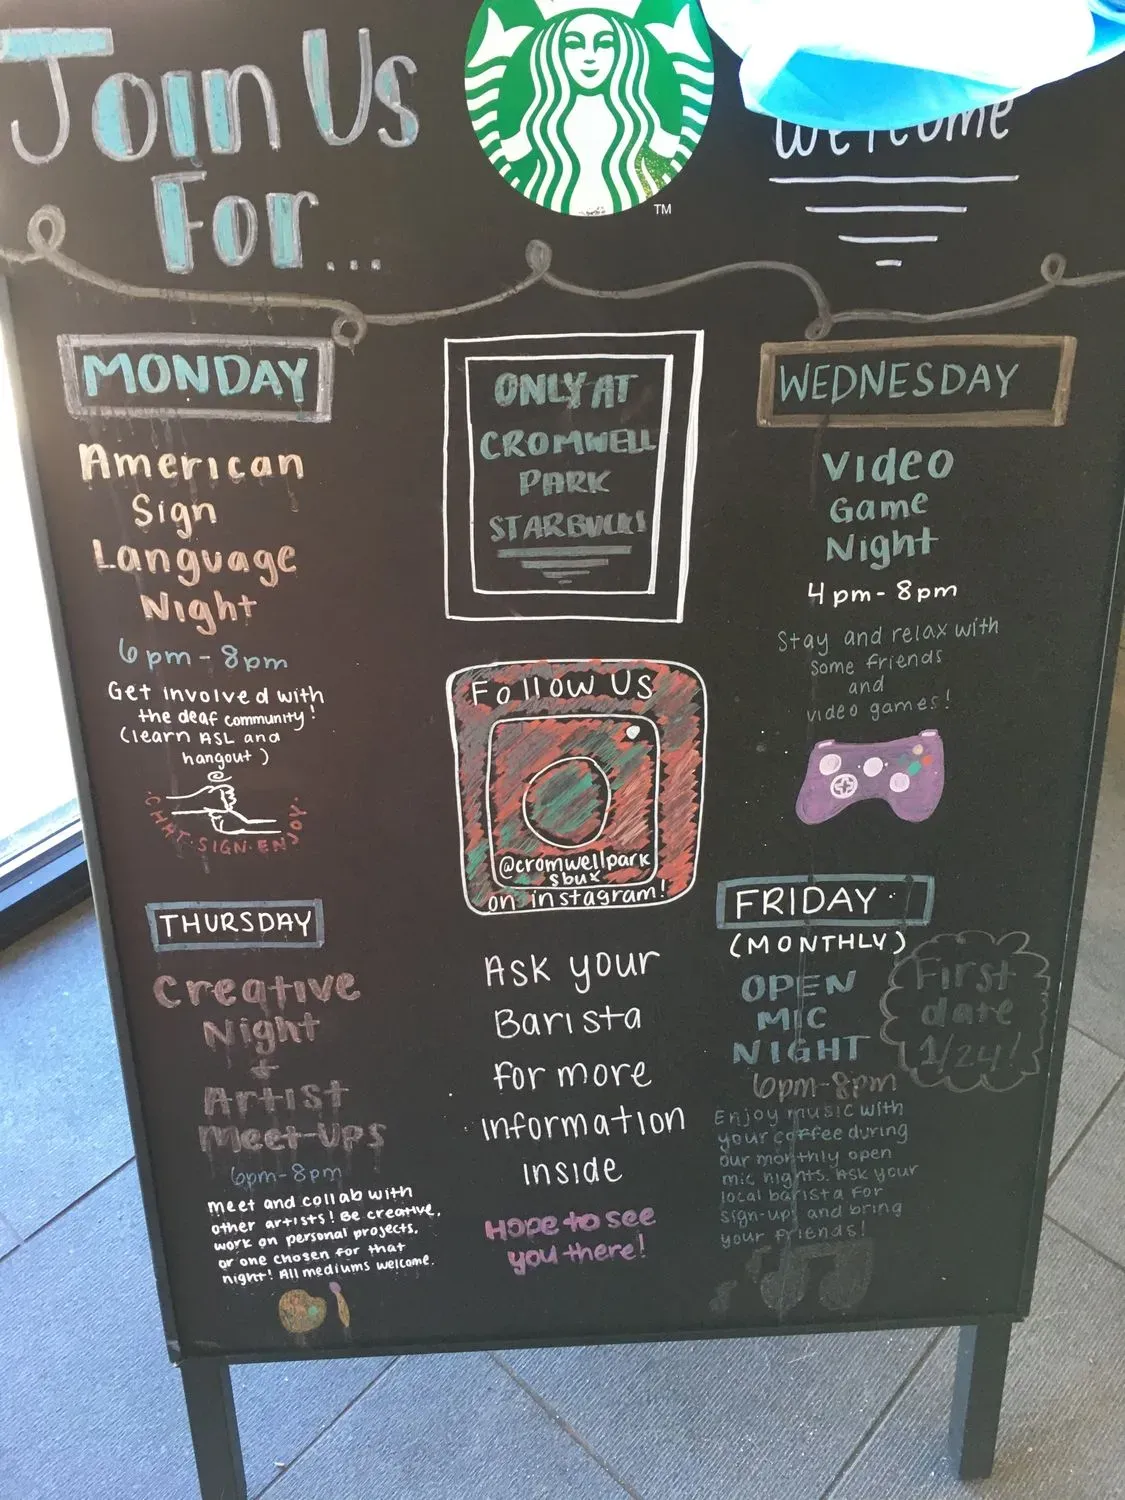 Join Us
For...
TM
Welcome
MONDAY
American
Sign
Language
Night
6pm-8pm
Get involved with
the deaf community!
(learn ASL and
hangout)
CHAT·SIGN·ENJOY·
ONLY AT
CROMWELL
PARK
STARBUCKS
WEDNESDAY
Video
Game
Night
4pm-8pm
Stay and relax with
some friends
and
video games!
Follow US
@cromwellpark
sbux
on instagram!
THURSDAY
Creative
Night
+
Artist
Meet-Ups
6pm-8pm
meet and collab with
other artists! Be creative,
work on personal projects,
or one chosen for that
night! All mediums welcome.
Ask your
Barista
for more
information
inside
Hope to see
you there!
FRIDAY
(MONTHLY)
OPEN
MIC
NIGHT
6pm-8pm
First
date
1/24!
Enjoy music with
your coffee during
our monthly open
mic nights. Ask your
local barista for
sign-ups and bring
your friends!